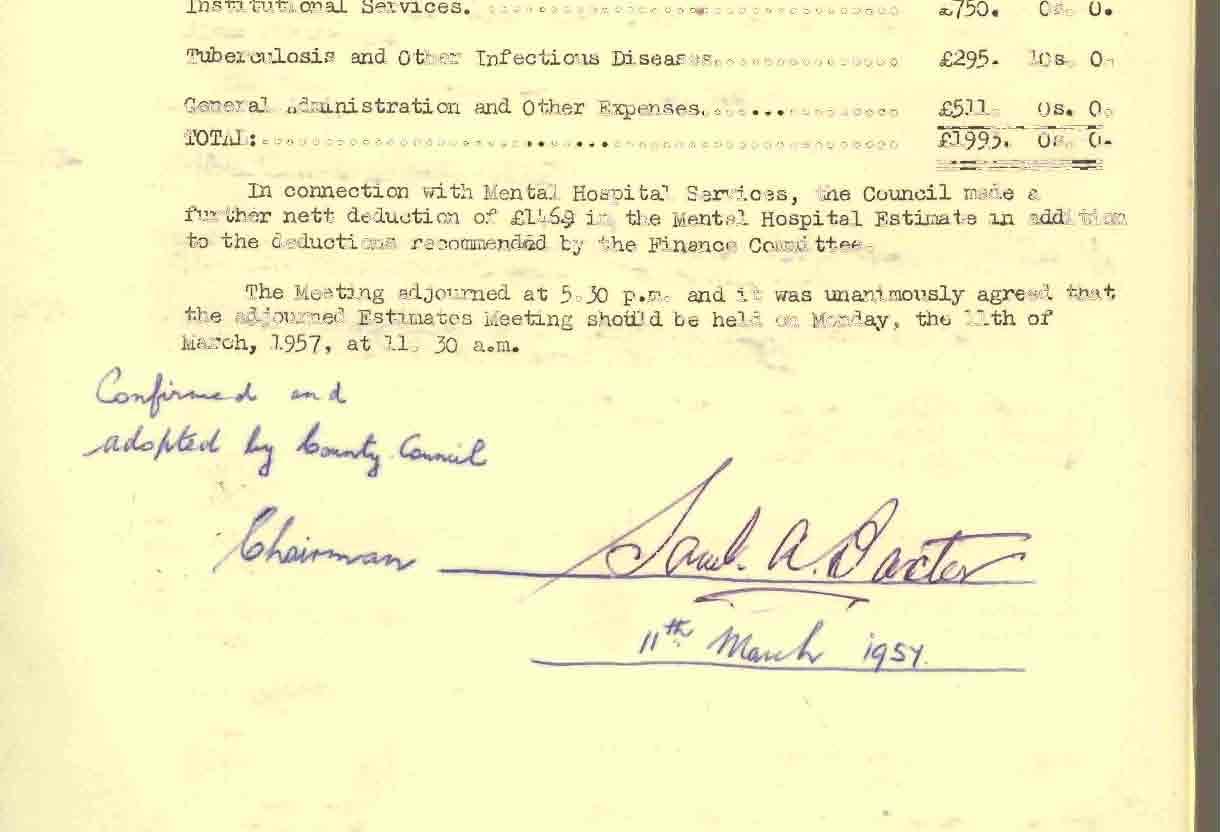 Institutional Services. .......................... £750. 0s. 0.
Tuberculosis and Other Infectious Diseases................ £295. 10s. 0.
General Administration and Other Expenses................ £511. 0s. 0.
TOTAL:.................................................. £1995. 0s. 0.
In connection with Mental Hospital Services, the Council made a
further nett deduction of £1469 in the Mental Hospital Estimate in addition
to the deductions recommended by the Finance Committee.
The Meeting adjourned at 5.30 p.m. and it was unanimously agreed that
the adjourned Estimates Meeting should be held on Monday, the 11th of
March, 1957, at 11. 30 a.m.
Confirmed and
adopted by County Council
Chairman Saml. A. Baxter
11th March 1957.